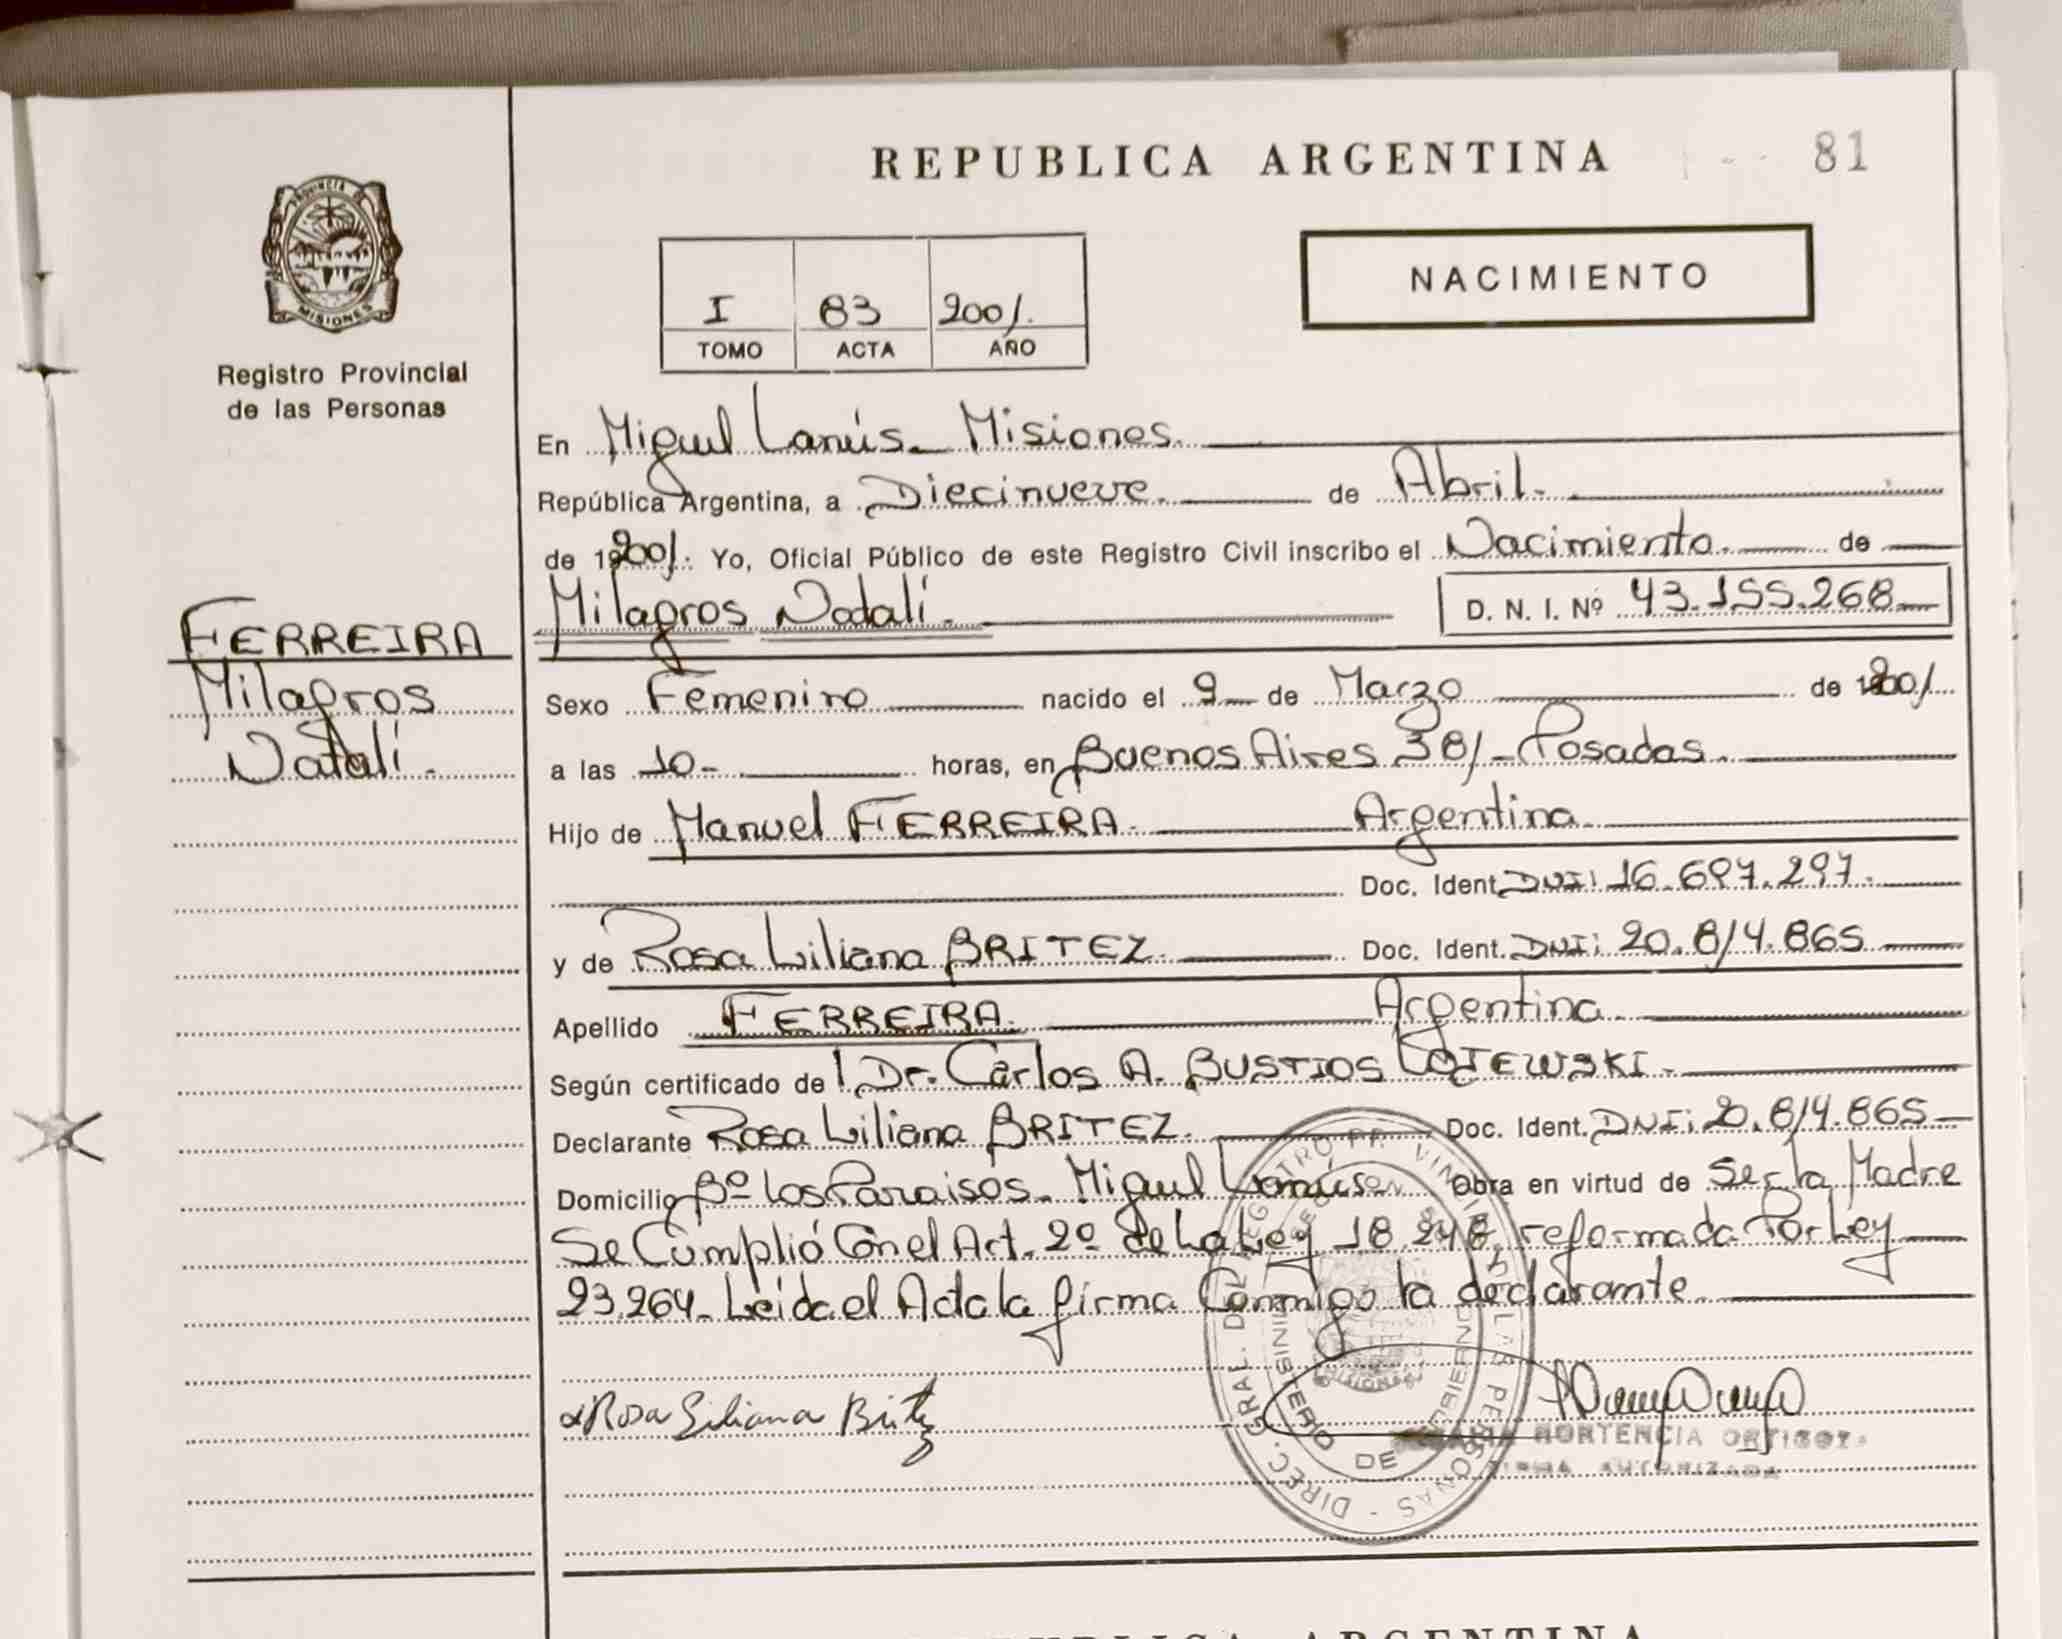 REPUBLICA ARGENTINA 81
PROVINCIA
MISIONES
Registro Provincial
de las Personas
I 83 2001.
TOMO ACTA AÑO
NACIMIENTO
En Miguel Lanús. Misiones.
República Argentina, a Diecinueve. de Abril.
de 192001. Yo, Oficial Público de este Registro Civil inscribo el Nacimiento. de
Milagros Natalí. D. N. I. Nº 43.155.268
FERREIRA
Milagros
Natalí.
Sexo Femenino nacido el 9 de Marzo de 2001.
a las 10- horas, en Buenos Aires 381- Posadas.
Hijo de Manuel FERREIRA. Argentina.
Doc. Ident. DNI: 16.697.297.
y de Rosa Liliana BRITEZ. Doc. Ident. DNI: 20.814.865
Apellido FERREIRA. Argentina.
Según certificado de l Dr. Carlos A. BUSTIOS LOJEWSKI.
Declarante Rosa Liliana BRITEZ. Doc. Ident. DNI: 20.814.865
Domicilio Bº Los Paraisos. Miguel Lanús. Obra en virtud de Ser la Madre
Se Cumplió Con el Art. 2º de la Ley 18.248, reformada Por Ley
23.264. Leida el Acta la firma Conmigo la declarante.
Rosa Liliana Britez
HORTENCIA
FIRMA AUTORIZADA
DIREC. GRAL. DEL REGISTRO PROVINCIAL DE LAS PERSONAS
MINISTERIO DE GOBIERNO
MISIONES
REPUBLICA ARGENTINA